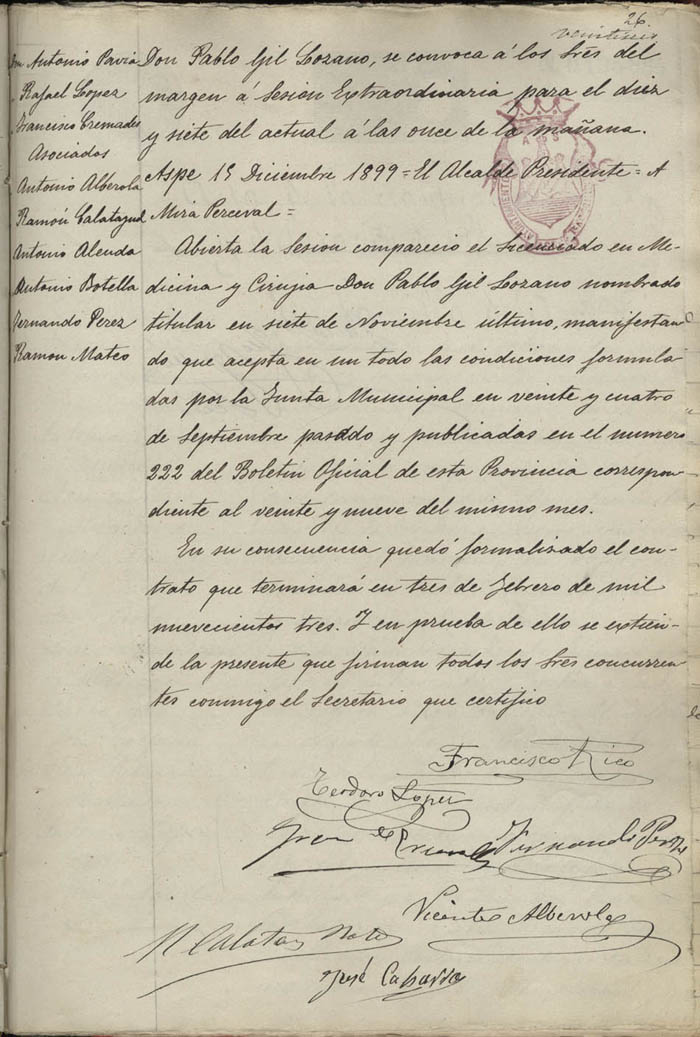 26.
veintiseis
Don Antonio Pavia
Rafael Lopez
Francisco Cremades
Asociados
Antonio Alberola
Ramón Calatayud
Antonio Alenda
Antonio Botella
Fernando Perez
Ramon Mateo
Don Pablo Gil Lozano, se convoca á los Sres del
margen á Sesion Extraordinaria para el diez
y siete del actual á las once de la mañana.
Aspe 15 Diciembre 1899 = El Alcalde Presidente = A
Mira Perceval =
Abierta la Sesion comparecio el Licenciado en Me-
dicina y Cirujia Don Pablo Gil Lozano nombrado
titular en siete de Noviembre último, manifestan-
do que acepta en un todo las condiciones formula-
das por la Junta Municipal en veinte y cuatro
de Septiembre pasado y publicadas en el numero
222 del Boletin Oficial de esta Provincia correspon-
diente al veinte y nueve del mismo mes.
En su consecuencia quedó formalizado el con-
trato que terminará en tres de Febrero de mil
nuevecientos tres. Y en prueba de ello se extien-
de la presente que firman todos los Sres concurren-
tes conmigo el Secretario que certifico
Francisco Rico
Teodoro Lopez
Fernando Perez
Vicente Alberola
José Caparros